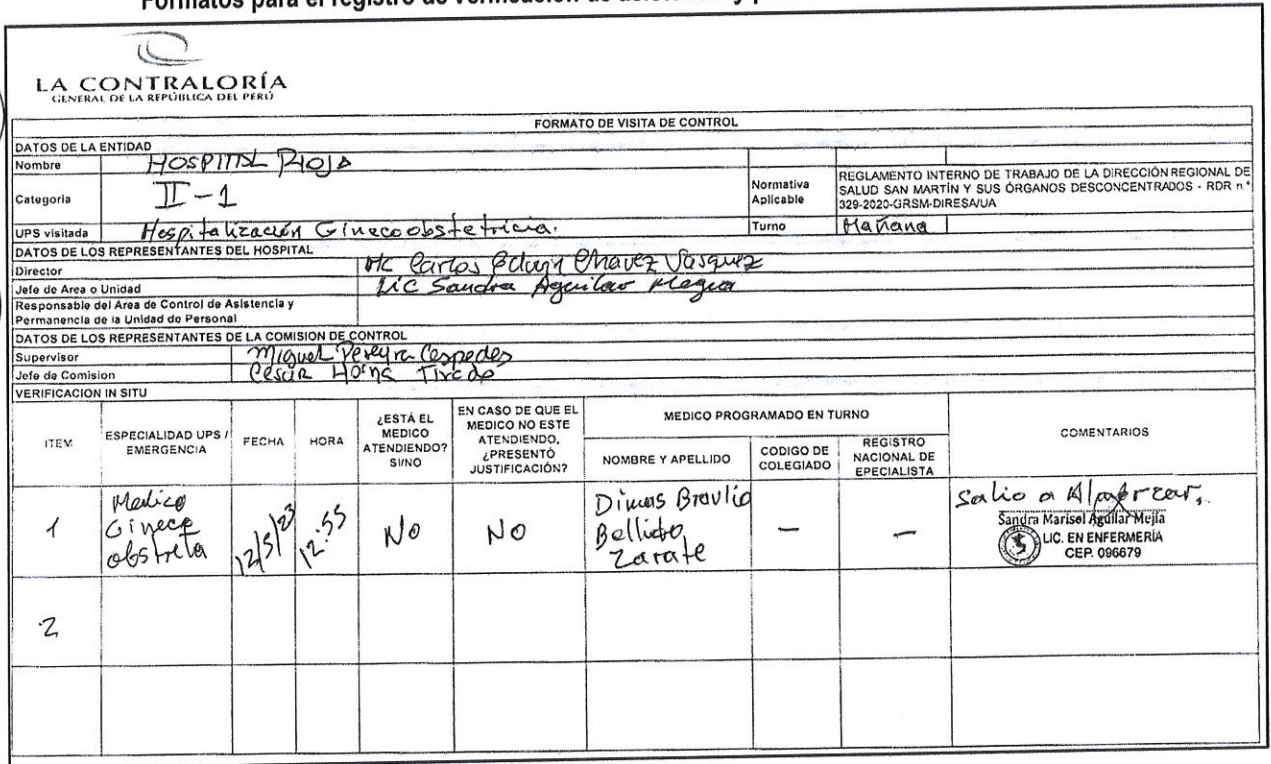 Formatos para el registro de verificación de asistencia y p
LA CONTRALORÍA
GENERAL DE LA REPÚBLICA DEL PERÚ
FORMATO DE VISITA DE CONTROL
DATOS DE LA ENTIDAD
Nombre HOSPITAL RIOJA
Categoria II-1 Normativa Aplicable REGLAMENTO INTERNO DE TRABAJO DE LA DIRECCIÓN REGIONAL DE
SALUD SAN MARTÍN Y SUS ÓRGANOS DESCONCENTRADOS - RDR n.°
329-2020-GRSM-DIRESA/UA
UPS visitada Hospitalización Ginecoobstetricia. Turno Mañana
DATOS DE LOS REPRESENTANTES DEL HOSPITAL
Director MC Carlos Eduyn Chavez Vasquez
Jefe de Area o Unidad Lic Sandra Aguilar
Responsable del Area de Control de Asistencia y
Permanencia de la Unidad de Personal
DATOS DE LOS REPRESENTANTES DE LA COMISION DE CONTROL
Supervisor Miguel Pereyra Cespedes
Jefe de Comision Cesar Horna Tirado
VERIFICACION IN SITU
ITEM
ESPECIALIDAD UPS /
EMERGENCIA
FECHA
HORA
¿ESTÁ EL
MEDICO
ATENDIENDO?
SI/NO
EN CASO DE QUE EL
MEDICO NO ESTE
ATENDIENDO,
¿PRESENTÓ
JUSTIFICACIÓN?
MEDICO PROGRAMADO EN TURNO
NOMBRE Y APELLIDO
CODIGO DE
COLEGIADO
REGISTRO
NACIONAL DE
EPECIALISTA
COMENTARIOS
1
Medico
Gineco
obstreta
12/5/23
12:55
No
No
Dimas Braulio
Bellido
Zarate
-
-
Salio a Almorzar,
Sandra Marisol Aguilar Mejía
LIC. EN ENFERMERÍA
CEP. 096679
2